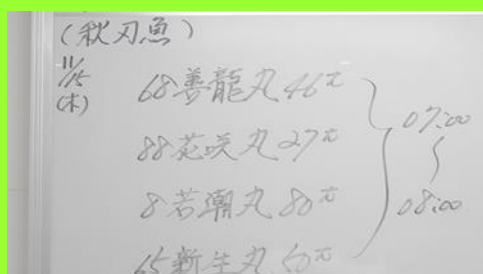 (秋刀魚)
11/15
(木)
68善龍丸 46t
88花咲丸 27t
8若潮丸 80t
65新生丸 60t
07:00
〜
08:00